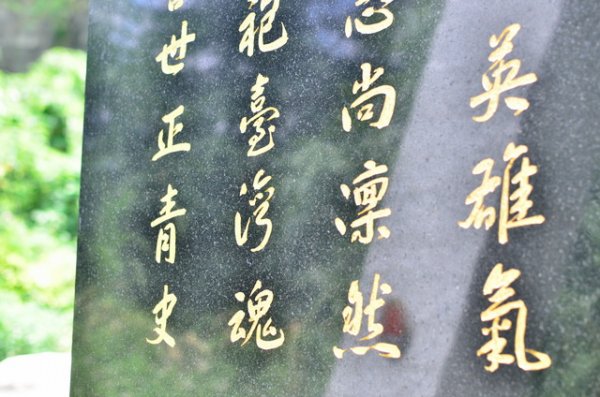 英雄氣
尚凜然
祀臺灣魂
世正青史